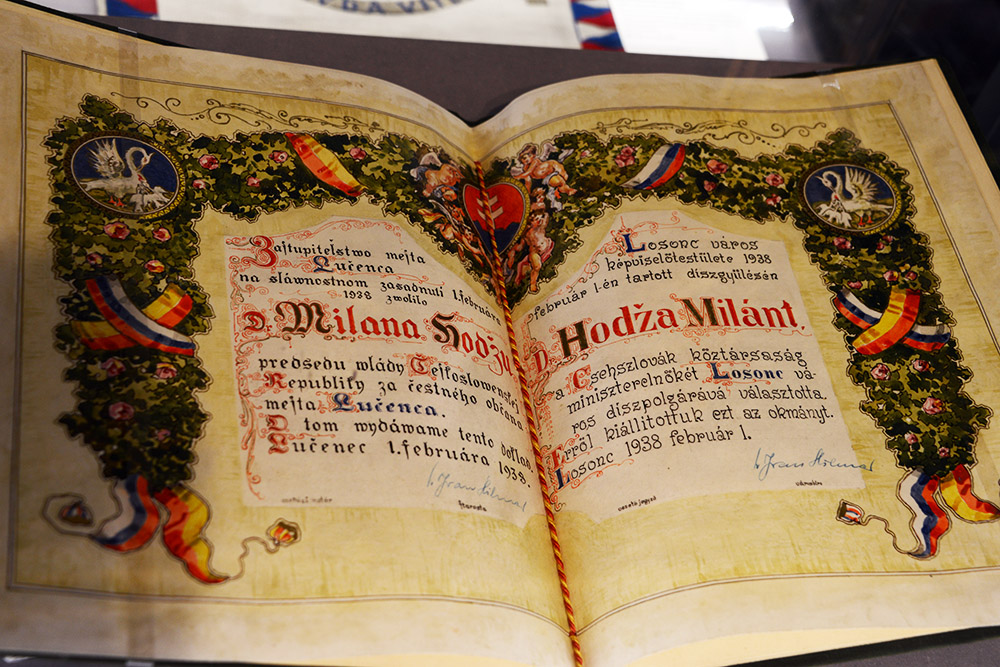 Zastupiteľstvo mesta
Lučenca
na sláwnostnom zasadnutí 1. februára
1938 zwolilo
Dr. Milana Hodžu
predsedu wlády Českoslowenskej
Republiky za čestného občana
mesta Lučenca.
O tom wydáwame tento doklad.
Lučenec 1. februára 1938.
starosta
Losonc város
képviselőtestülete 1938
február 1-én tartott díszgyűlésén
Dr. Hodža Milánt,
a Csehszlovák köztársaság
miniszterelnökét Losonc vá-
ros díszpolgárává választotta.
Erről kiállítottuk ezt az okmányt.
Losonc 1938 február 1.
városbíró